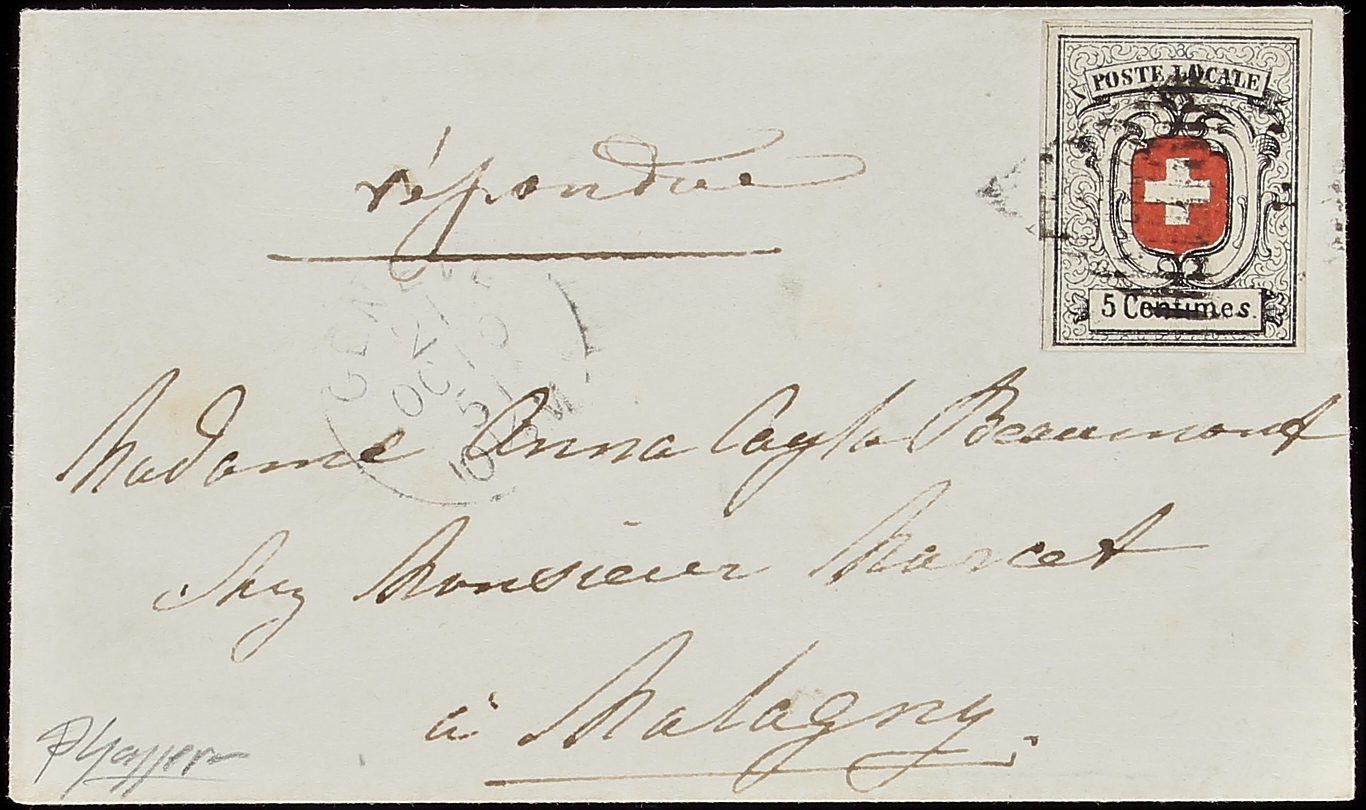 POSTE LOCALE
5 Centimes.
répondue
GENÈVE
21 OCTO 51
10
Madame Anna Cayla Beaumont
Chez Monsieur Marcet
à Malagny.